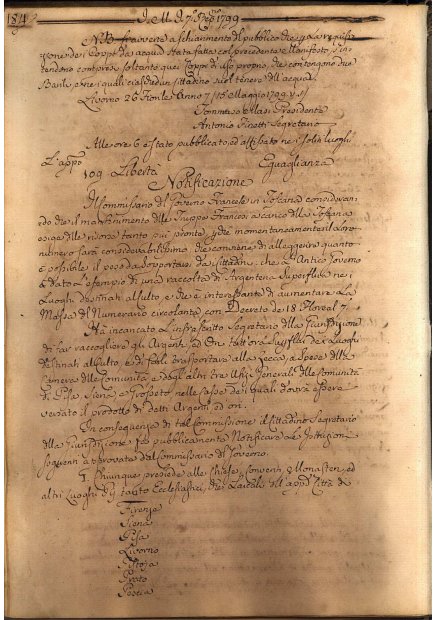 184
1799
NB. si avverte a schiarimento del pubblico che
dei Coppi da acqua stata fatta col precedente Manifesto, s'in
tendono compresi soltanto quei Coppi di uso proprio, che contengono due
Barili e ne i quali ciaschedun Cittadino suol tenere dell'acqua.
Livorno 26 Fiorile Anno 7/15 Maggio 1799. v. s/
Tommaso Presidente
Antonio Segretario
Alle ore 6 è stato pubblicato, ed affisso ne i soliti luoghi
109 Libertà Eguaglianza
Notificazione
Il Commissario del Governo Francese in Toscana consideran
do che il mantenimento delle Truppe Francesi a carico della Toscana
esige delle risorse tanto più pronte, che momentaneamente il loro
numero sarà considerabilissimo, che conviene di alleggerire quanto
è possibile il peso da sopportarsi da i Cittadini, che L'Antico Governo
à dato L'esempio di una raccolta di Argenteria Superflua ne i
Luoghi destinati al culto, e che è interessante di aumentare La
Massa del Numerario circolante, con Decreto de 18 Floreal 7.
Ha incaricato L'infrascritto Segretario della Giurisdizione
di far raccogliere gli Argenti, ed Ori tutt'ora Superflui de i Luoghi
destinati al Culto, e di farli transportare alla Zecca, a spese della
Camera delle Comunità, e degli altri tre Ufizj Generali delle Comunità
di Pisa, Siena, e Grosseto, nelle casse de i quali dovrà essere
versato il prodotto di detti Argenti, ed ori.
In conseguenza di tal Commissione il Cittadino Segretario
della Giurisdizione fa pubblicamente Notificare Le Istruzioni
seguenti approvate dal Commissario del Governo.
I. Chiunque presiede alle Chiese, Conventi, e Monasteri, ed
altri Luoghi Pij tanto Ecclesiastici, che Laicali delle Città di
Firenze
Siena
Pisa
Livorno
Pistoja
Prato
Pescia